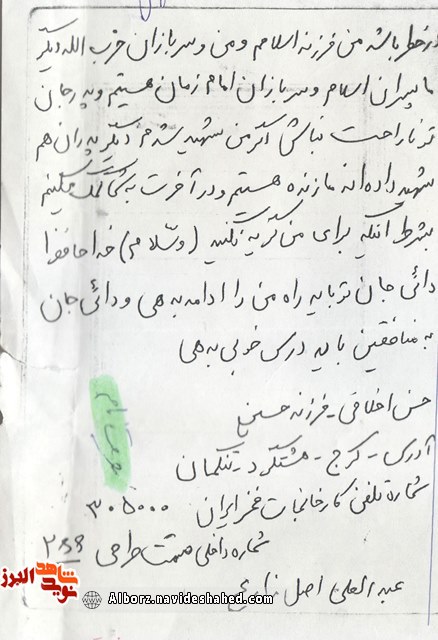 در خطر باشد من فرزند اسلامم و من و سربازان حزب الله دیگر
ما پسران اسلام و سربازان امام زمان هستیم و پدر جان
تو ناراحت نباش اگر من شهید شدم دیگر پدران هم
شهید داده اند ما زنده هستیم و در آخرت به شما کمک میکنیم
بشرط آنکه برای من گریه نکنید (والسلام) خداحافظ
دائی جان تو باید راه من را ادامه بدهی و دائی جان
به منافقین باید درس خوبی بدهی
حسن اخلاقی - فرزند حسین
آدرس - کرج - هشتگرد - تنکمان
شماره تلفن کارخانجات فخر ایران ۳۰۵۰۰۰
شماره داخلی قسمت طراحی ۲۵۹
عبدالعلی اصل زارع
شاهد
نوید البرز
Alborz.navideshahed.com